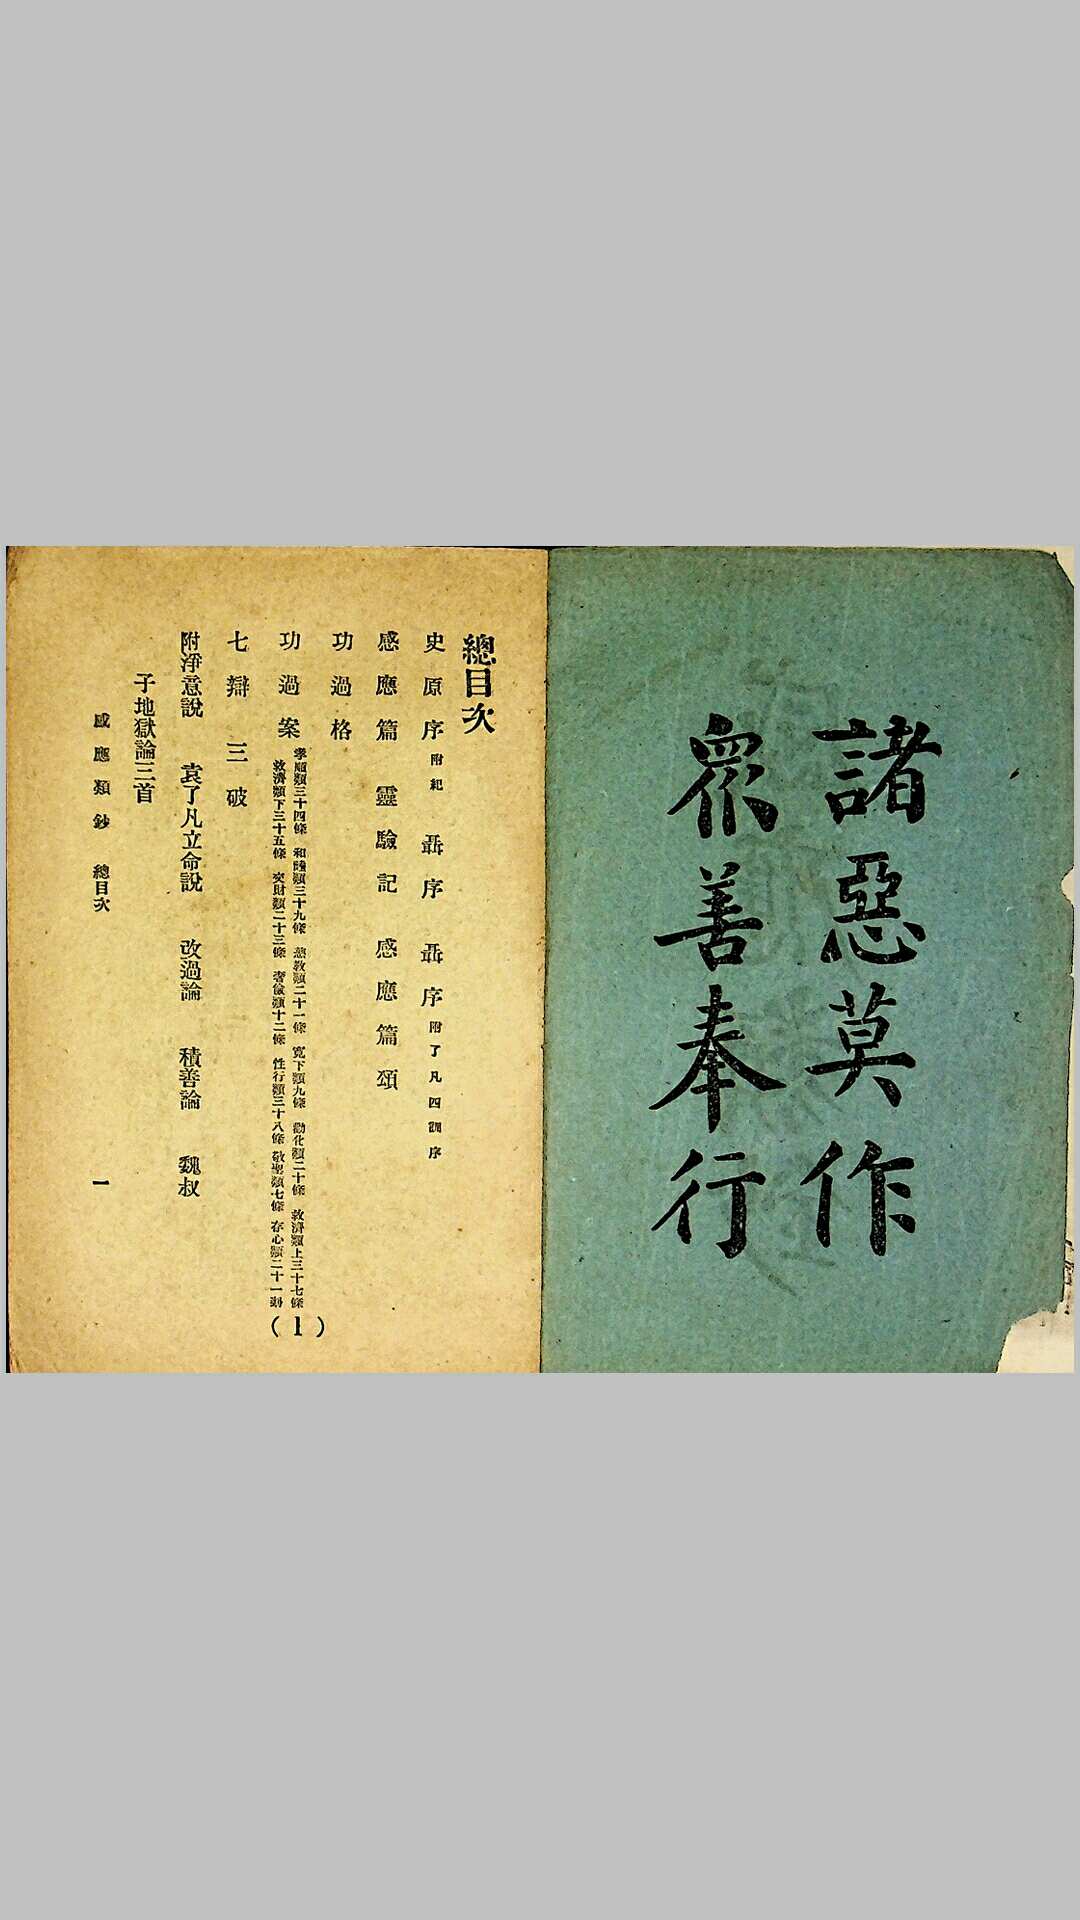 諸惡莫作
眾善奉行
總目次
史原序 附紀 聶序 聶序 附了凡四訓序
感應篇 靈驗記 感應篇頌
功過格
功過案 孝順類三十四條 和睦類三十九條 慈教類二十一條 寬下類九條 勸化類二十條 救濟類上三十七條
救濟類下三十五條 交財類二十三條 奢儉類十二條 性行類三十八條 敬聖類七條 存心類二十一
(1)
七辯 三破
附淨意說 袁了凡立命說 改過論 積善論 魏叔
子地獄論三首
感應類鈔 總目次 一